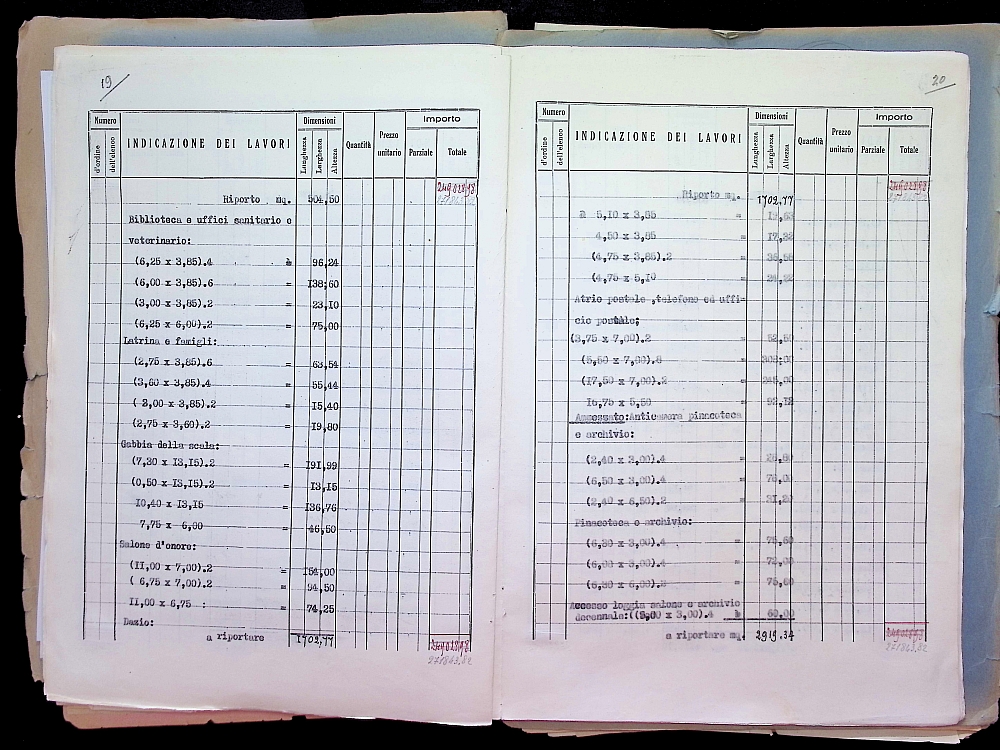 19
Numero
d'ordine
dell'elenco
INDICAZIONE DEI LAVORI
Dimensioni
Lunghezza
Larghezza
Altezza
Quantità
Prezzo
unitario
Importo
Parziale
Totale
Riporto mq. 504,50
Biblioteca e uffici sanitario e
veterinario:
(6,25 x 3,85).4 = 96,24
(6,00 x 3,85).6 = 138;60
(3,00 x 3,85).2 = 23,10
(6,25 x 6,00).2 = 75,00
Latrina e famigli:
(2,75 x 3,85).6 = 63,54
(3,60 x 3,85).4 = 55,44
( 2,00 x 3,85).2 = 15,40
(2,75 x 3,60).2 = 19,80
Gabbia della scala:
(7,30 x 13,15).2 = 191,99
(0,50 x 13,15).2 = 13,15
10,40 x 13,15 136,76
7,75 x 6,00 = 46,50
Salone d'onore:
(11,00 x 7,00).2 = 154,00
( 6,75 x 7,00).2 = 94,50
11,00 x 6,75 : = 74,25
Dazio:
a riportare 1702,77
271863,82
20
Numero
d'ordine
dell'elenco
INDICAZIONE DEI LAVORI
Dimensioni
Lunghezza
Larghezza
Altezza
Quantità
Prezzo
unitario
Importo
Parziale
Totale
Riporto mq. 1702.77
5,10 x 3,85 =
4,50 x 3,85 = 17,32
(4,75 x 3,85).2 = 36,58
(4,75 x 5,10 =
Atrio postale ,telefono ed uffi=
cio postale;
(3,75 x 7,00).2 = 52,50
(5,50 x 7,00).8 = 308;00
(17,50 x 7,00).2 = 245,00
16,75 x 5,50 = 92,12
Ammezzato:Anticamera pinacoteca
e archivio:
(2,40 x 3,00).4 = 28,80
(6,50 x 3,00).4 = 78,00
(2,40 x 6,50).2 = 31,20
Pinacoteca e archivio:
(6,30 x 3,00).4 = 75,60
(6,00 x 3,00).4 = 72,00
(6,30 x 6,00).2 = 75,60
Accesso loggia salone e archivio
decennale:((5,00 x 3,00).4 = 60,00
a riportare mq. 2919.34
271863,82